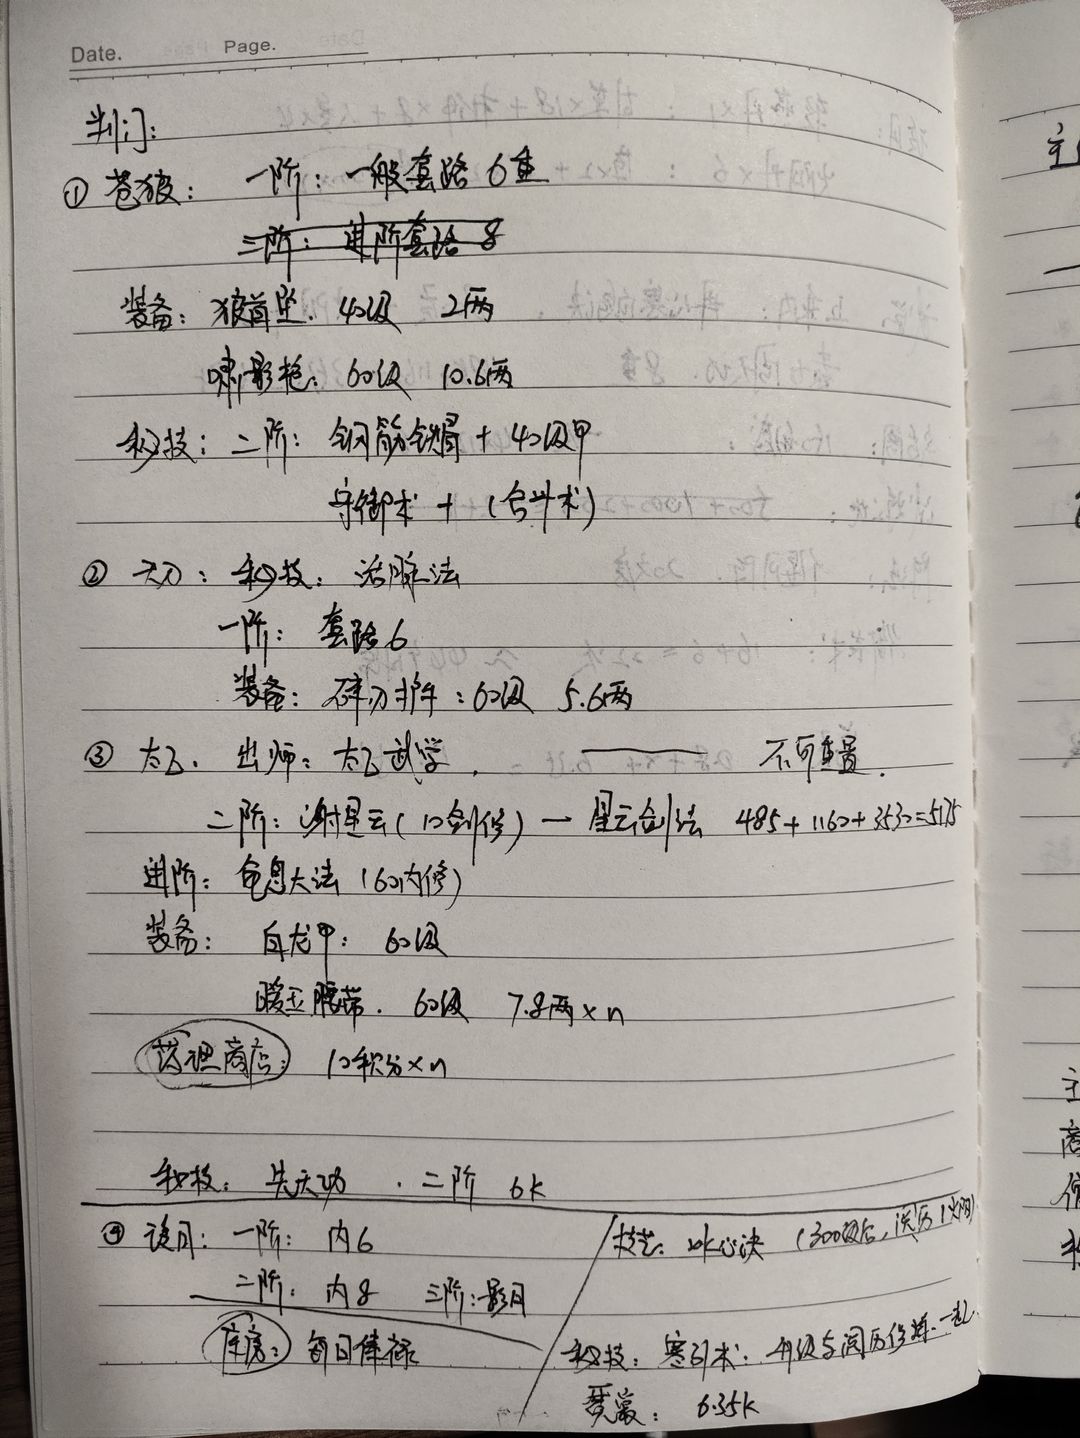 Date. Page.
判门:
① 苍狼: 一阶: 一般套路6重
二阶: 进阶套路 8
装备: 狼首坠. 40级 2两
啸影枪: 60级 10.6两
秘技: 二阶: 钢筋铁骨 + 40级甲
守御术 + (合斗术)
② 天刀: 秘技: 活脉法
一阶: 套路6
装备: 碎刃护手: 60级 5.6两
③ 太乙. 出师: 太乙武学. 不可重置.
二阶: 谢星云(10剑修) — 星云剑法 485+1160+3530=5175
进阶: 龟息大法 (60内修)
装备: 白龙甲: 60级
暖玉腰带. 60级 7.8两×n
药理商店: 10积分×n
秘技: 先天功 . 二阶 6k
④ 诶月: 一阶: 内6
技艺: 冰心决 (300级后,
二阶: 内8 三阶:影月
库房: 每日俸禄
秘技: 寒引术: 升级与阅历修炼一起.
6.35k